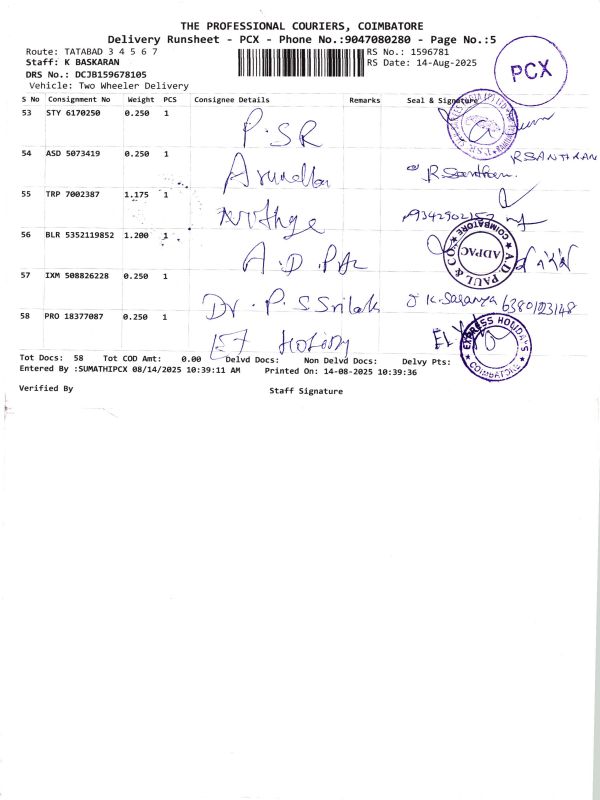 THE PROFESSIONAL COURIERS, COIMBATORE
Delivery Runsheet - PCX - Phone No.:9047080280 - Page No.:5
Route: TATABAD 3 4 5 6 7
RS No.: 1596781
Staff: K BASKARAN
RS Date: 14-Aug-2025
DRS No.: DCJB159678105
Vehicle: Two Wheeler Delivery
PCX
S No Consignment No Weight PCS Consignee Details Remarks Seal & Signature
53 STY 6170250 0.250 1 P.SR
54 ASD 5073419 0.250 1 R.Santhan.
RSANTHAN
55 TRP 7002387 1.175 1
56 BLR 5352119852 1.200 1 A.D.PAL
A.D. PAUL & CO. COIMBATORE ADPAC
57 IXM 508826228 0.250 1 Dr. P.S Srilak K.Saranya 6380123148
58 PRO 18377087 0.250 1
EXPRESS HOLIDAYS COIMBATORE
Tot Docs: 58 Tot COD Amt: 0.00 Delvd Docs: Non Delvd Docs: Delvy Pts:
Entered By :SUMATHIPCX 08/14/2025 10:39:11 AM Printed On: 14-08-2025 10:39:36
Verified By Staff Signature